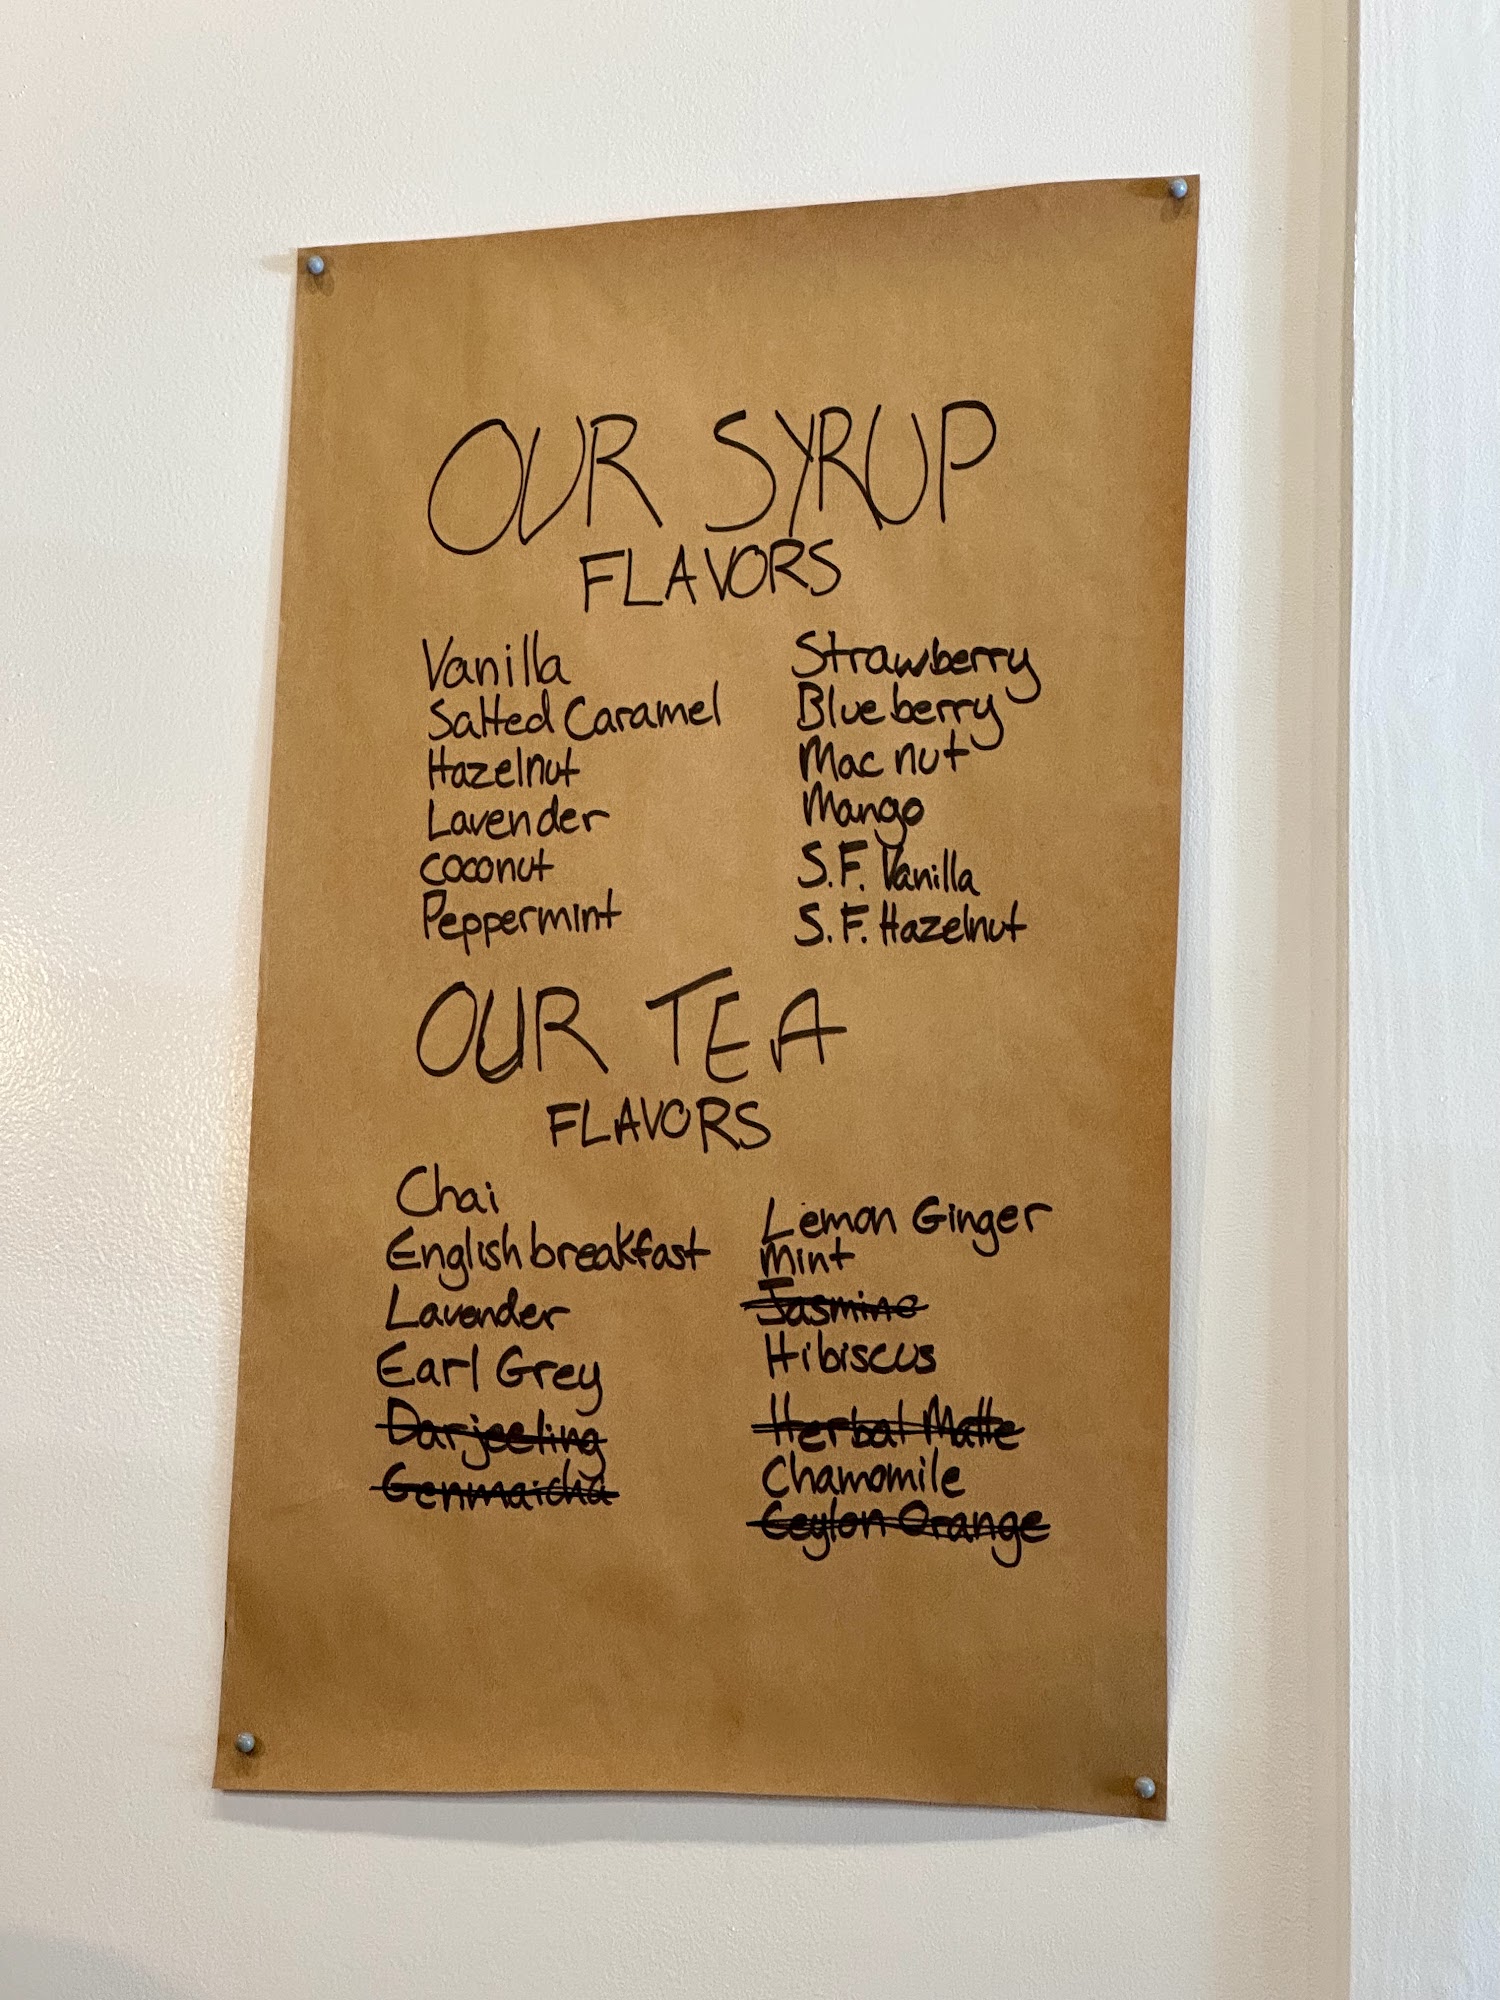 OUR SYRUP
FLAVORS
Vanilla
Salted Caramel
Hazelnut
Lavender
coconut
Peppermint
Strawberry
Blueberry
Mac nut
Mango
S.F. Vanilla
S.F. Hazelnut
OUR TEA
FLAVORS
Chai
English breakfast
Lavender
Earl Grey
Darjeeling
Genmaicha
Lemon Ginger
Mint
Jasmine
Hibiscus
Herbal Matte
Chamomile
Ceylon Orange